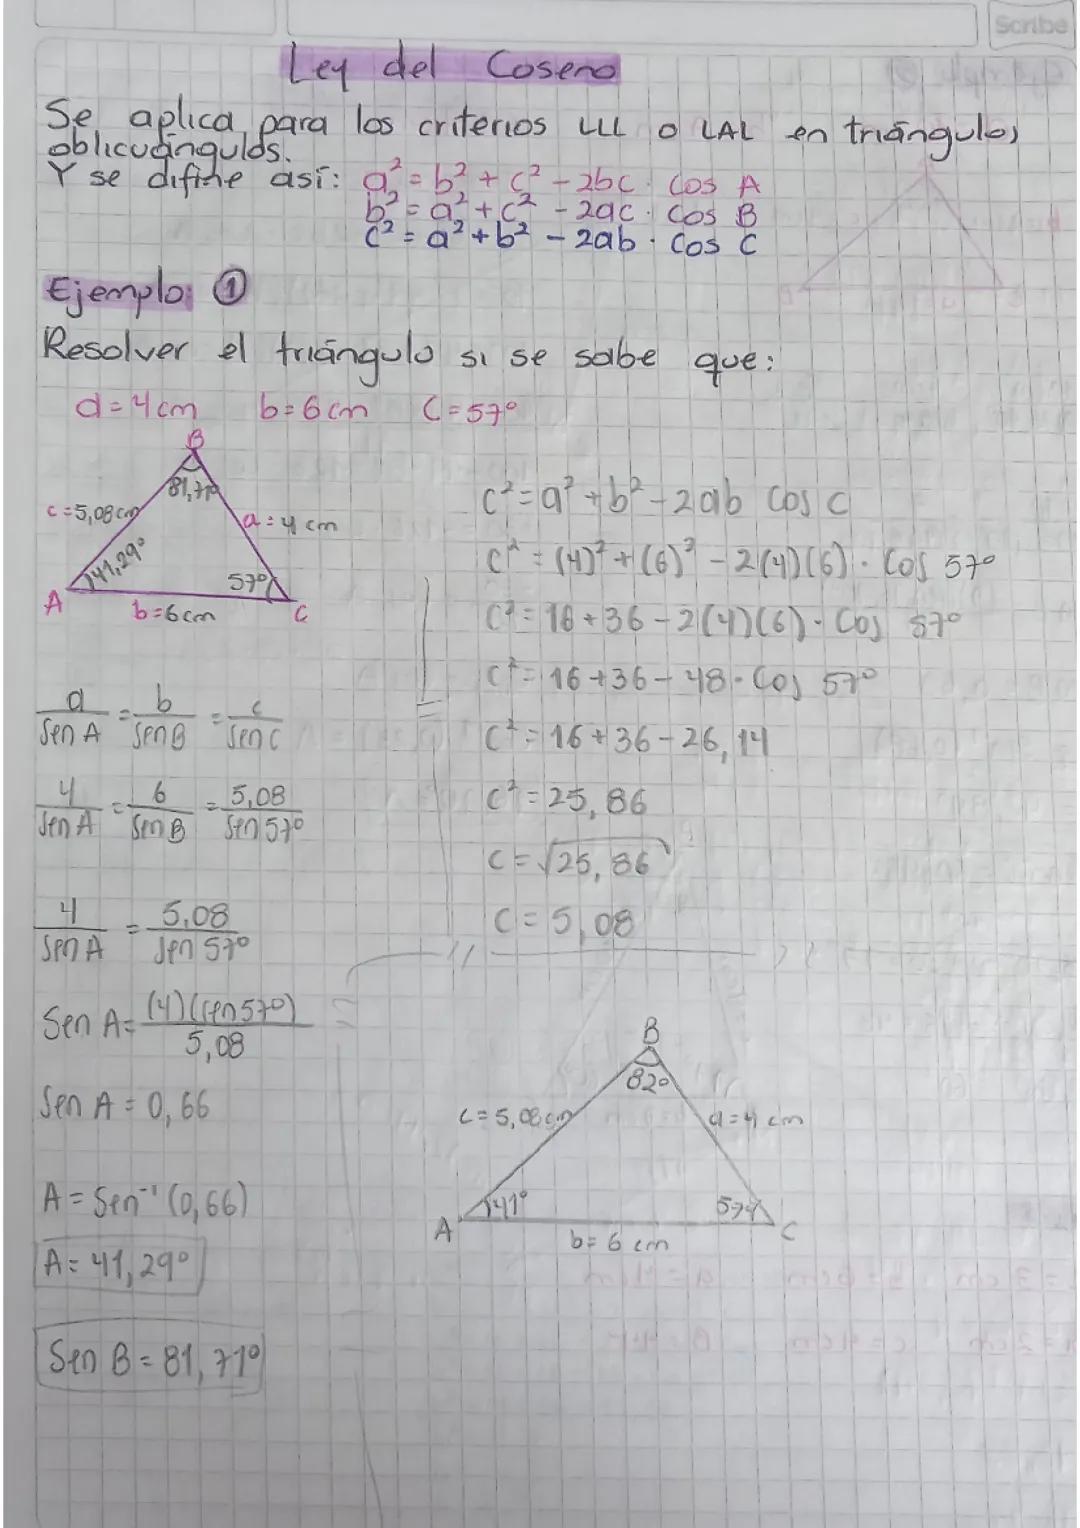 Scribe
Ley del Coseno
Se aplica para los criterios LLL o LAL en triángulos
oblicuángulos.
Y se difine así: a² = b² + c² - 2bc · cos A
b² = a² + c² - 2ac · cos B
c² = a² + b² - 2ab · cos C
Ejemplo: ①
Resolver el triángulo si se sabe que:
a = 4 cm b = 6 cm C = 57°
B
81,71°
c = 5,08 cm
a = 4 cm
41,29°
57°
A
b = 6 cm
C
c² = a² + b² - 2ab cos C
c² = (4)² + (6)² - 2(4)(6) · Cos 57°
c² = 16 + 36 - 2(4)(6) · Cos 57°
c² = 16 + 36 - 48 · Cos 57°
c² = 16 + 36 - 26,14
c² = 25,86
c = √25,86
c = 5,08
a/Sen A = b/Sen B = c/Sen C
4/Sen A = 6/Sen B = 5,08/Sen 57°
4/Sen A = 5,08/Sen 57°
Sen A = (4)(Sen 57°)/5,08
Sen A = 0,66
A = Sen⁻¹ (0,66)
A = 41,29°
Sen B = 81,71°
B
82°
c = 5,08 cm
a = 4 cm
41°
57°
A
b = 6 cm
C